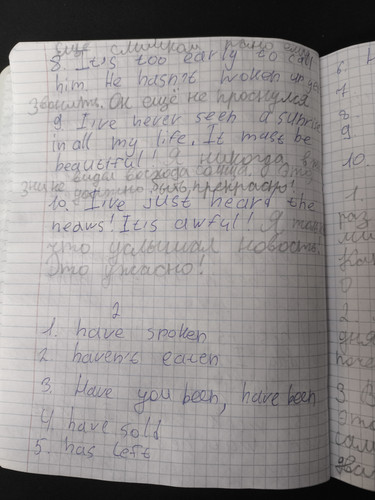 ещё слишком рано ему
8. It's too early to call
him. He hasn't woken up yet
звонить. Он ещё не проснулся
9. I've never seen a sunrise
in all my life. It must be
beautiful! Я никогда в
жизни не видел восхода солнца. Это
должно быть прекрасно!
10. I've just heard the
neaws! It is awful! Я только
что услышал новость!
Это ужасно!
2
1. have spoken
2 haven't eaten
3. Have you been, have been
4. have sold
5. has left
6
7
8.
9
10.
1.
раз
2.
3